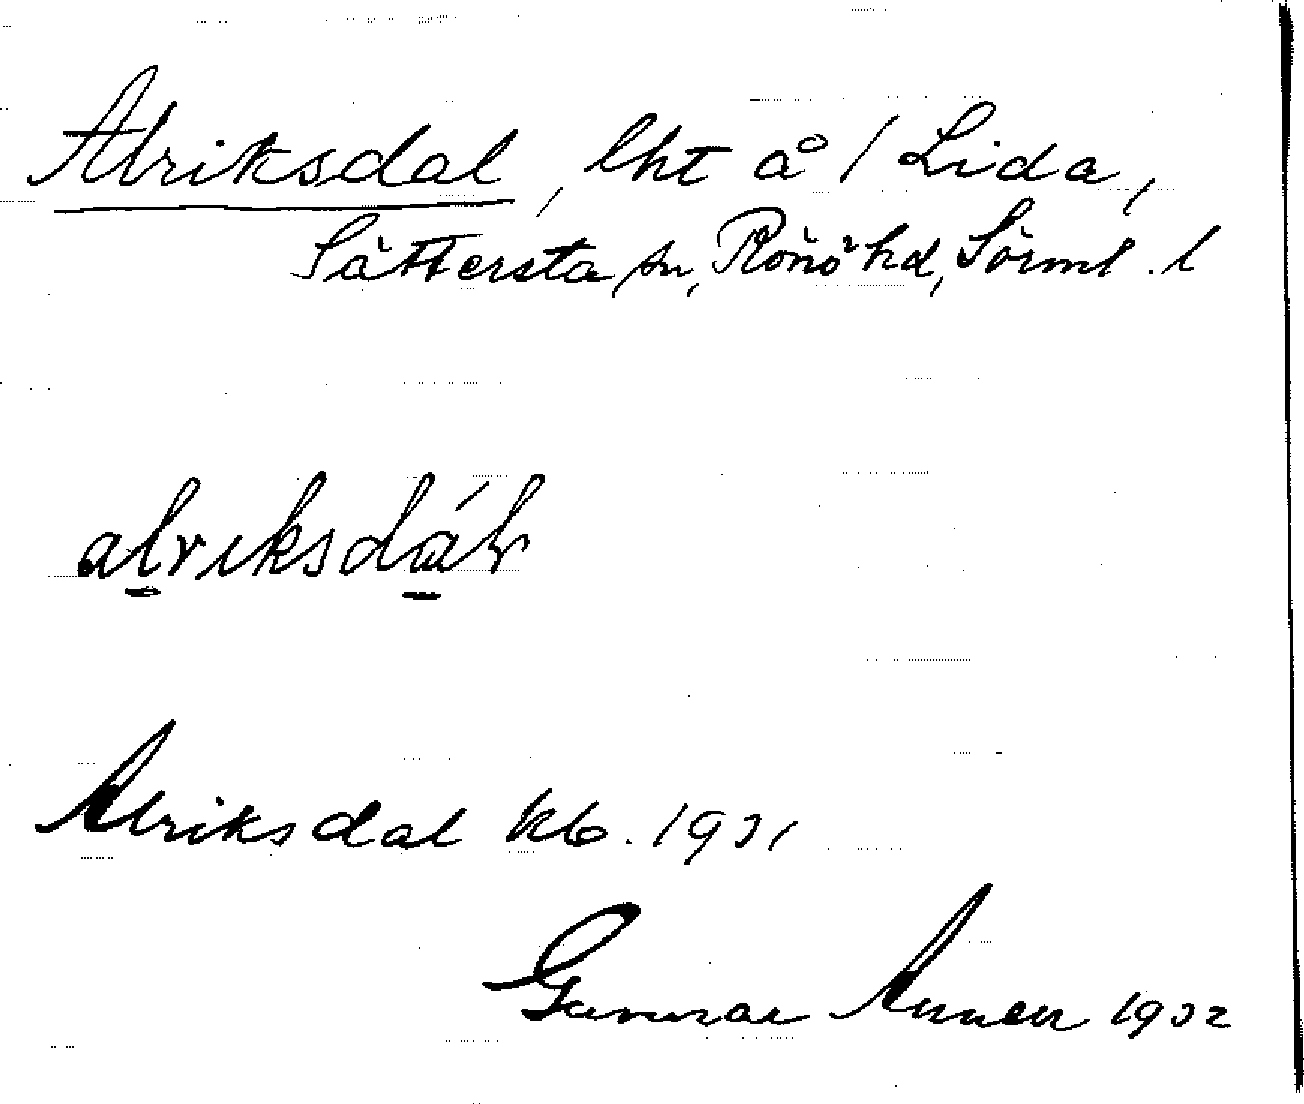 Alriksdal, lht å / Lida,
Sättersta sn, Rönö hd, Sörml. l
alriksdáḷ
Alriksdal kb. 1931
Gunnar Annell 1932